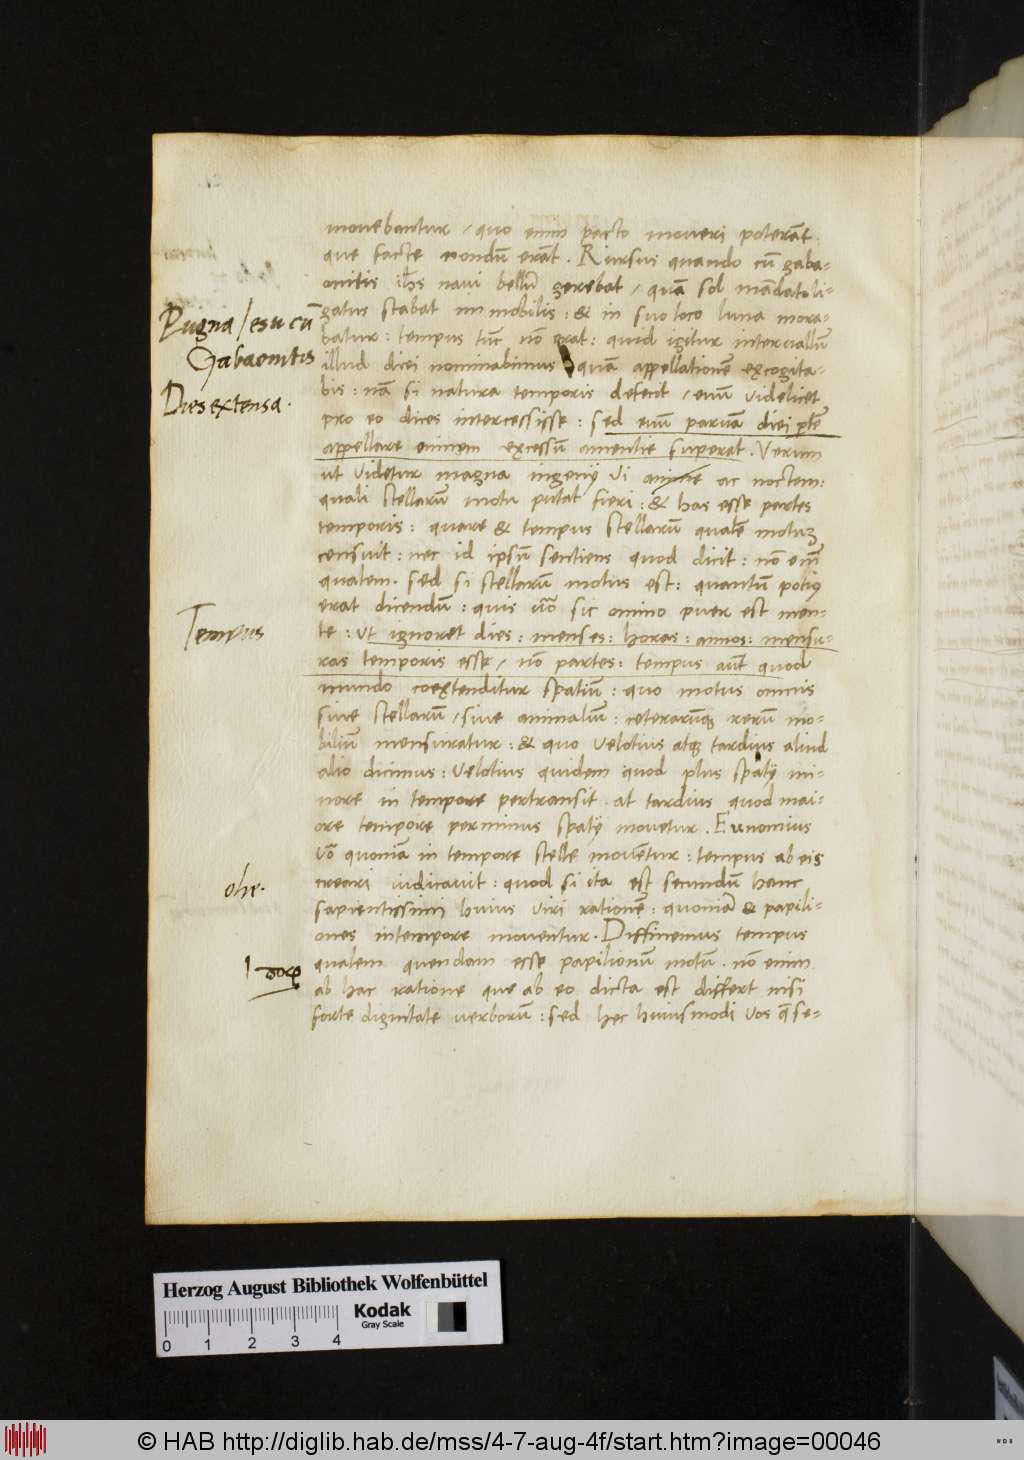 movebantur / quo enim pacto moveri poterāt
que facte nondū erāt . Rursus quando cū gaba-
onitis ih̄s navi bellū gerebat / quā sol mādato li-
gatus stabat immobilis : & in suo loco luna mora-
batur : tempus tūc nō erat : quid igitur intervallū
illud diei nominabimus quā appellationē excogita-
bis : nā si natura temporis defecit / evū videlicet
pro eo dices intercessisse : sed evū parvā diei ptē
appellare omnem excessū amentie superat . Verum
ut videtur magna ingenij vi ac noctem :
quali stellarū motu putat fieri : & has esse partes
temporis : quare & tempus stellarū qualē motuȝ
censuit : nec id ipsū sentiens quod dicit : nō enī
qualem . sed si stellarū motus est : quantū potiꝰ
erat dicendū : quis v̄o sic omino puer est men-
te : ut ignoret dies : menses : horas : annos : mensu-
ras temporis esse / nō partes : tempus aūt quod
mundo coextenditur spatiū : quo motus omnis
sive stellarū / sive animaliū : ceterarūqȝ rerū mo-
biliū mensuratur : & quo velotius atqȝ tardius aliud
alio dicimus : velotius quidem quod plus spatij mi-
nore in tempore pertransit . at tardius quod mai-
ore tempore perminus spatij movetur . Eunomius
v̄o quoniā in tempore stelle movētur : tempus ab eis
creari iudicavit : quod si ita est secundū hanc
sapientissimi huius viri rationē : quoniā & papili-
ones intempore moventur . Diffinemus tempus
qualem quendam esse papilionū motū . nō enim
ab hac ratione que ab eo dicta est differt nisi
forte dignitate verborū : sed hec huiusmodi vos q̄ se-
Pugna Iesu cū
Gabaonitis
Dies extensa .
Tempus
ohe .
Herzog August Bibliothek Wolfenbüttel
0 1 2 3 4
Kodak
Gray Scale
© HAB http://diglib.hab.de/mss/4-7-aug-4f/start.htm?image=00046